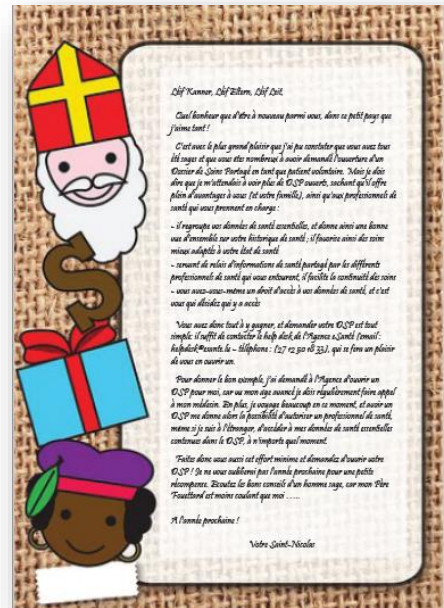 Léif Kanner, Léif Eltern, Léif Leit,
Quel bonheur que d'être à nouveau parmi vous, dans ce petit pays que
j'aime tant !
C'est avec le plus grand plaisir que j'ai pu constater que vous avez tous
été sages et que vous êtes nombreux à avoir demandé l'ouverture d'un
Dossier de Soins Partagé en tant que patient volontaire. Mais je dois
dire que je m'attendais à voir plus de DSP ouverts, sachant qu'il offre
plein d'avantages à vous (et votre famille), ainsi qu'aux professionnels de
santé qui vous prennent en charge :
- il regroupe vos données de santé essentielles, et donne ainsi une bonne
vue d'ensemble sur votre historique de santé ; il favorise ainsi des soins
mieux adaptés à votre état de santé
- servant de relais d'informations de santé partagé par les différents
professionnels de santé qui vous entourent, il facilite la continuité des soins
- vous avez vous-même un droit d'accès à vos données de santé, et c'est
vous qui décidez qui y a accès
Vous avez donc tout à y gagner, et demander votre DSP est tout
simple: il suffit de contacter le help desk de l'Agence eSanté (email :
helpdesk@esante.lu – téléphone : (27 12 50 18 33), qui se fera un plaisir
de vous en ouvrir un.
Pour donner le bon exemple, j'ai demandé à l'Agence d'ouvrir un
DSP pour moi, car vu mon age avancé je dois régulièrement faire appel
à mon médecin. En plus, je voyage beaucoup en ce moment, et avoir un
DSP me donne alors la possibilité d'autoriser un professionnel de santé,
même si je suis à l'étranger, d'accéder à mes données de santé essentielles
contenues dans le DSP, à n'importe quel moment.
Faites donc vous aussi cet effort minime et demandez d'ouvrir votre
DSP ! Je ne vous oublierai pas l'année prochaine pour une petite
récompense. Ecoutez les bons conseils d'un homme sage, car mon Père
Fouettard est moins coulant que moi .....
A l'année prochaine !
Votre Saint-Nicolas